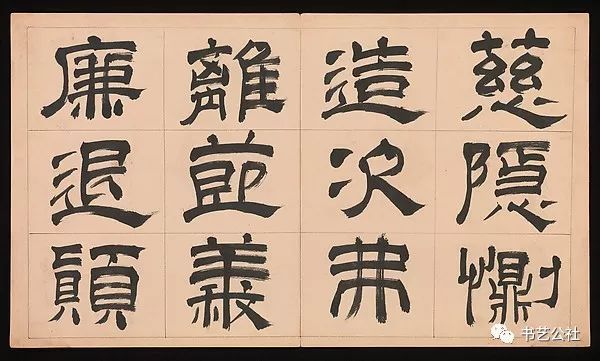 慈隱惻
造次弗
離節義
廉退顛
书艺公社